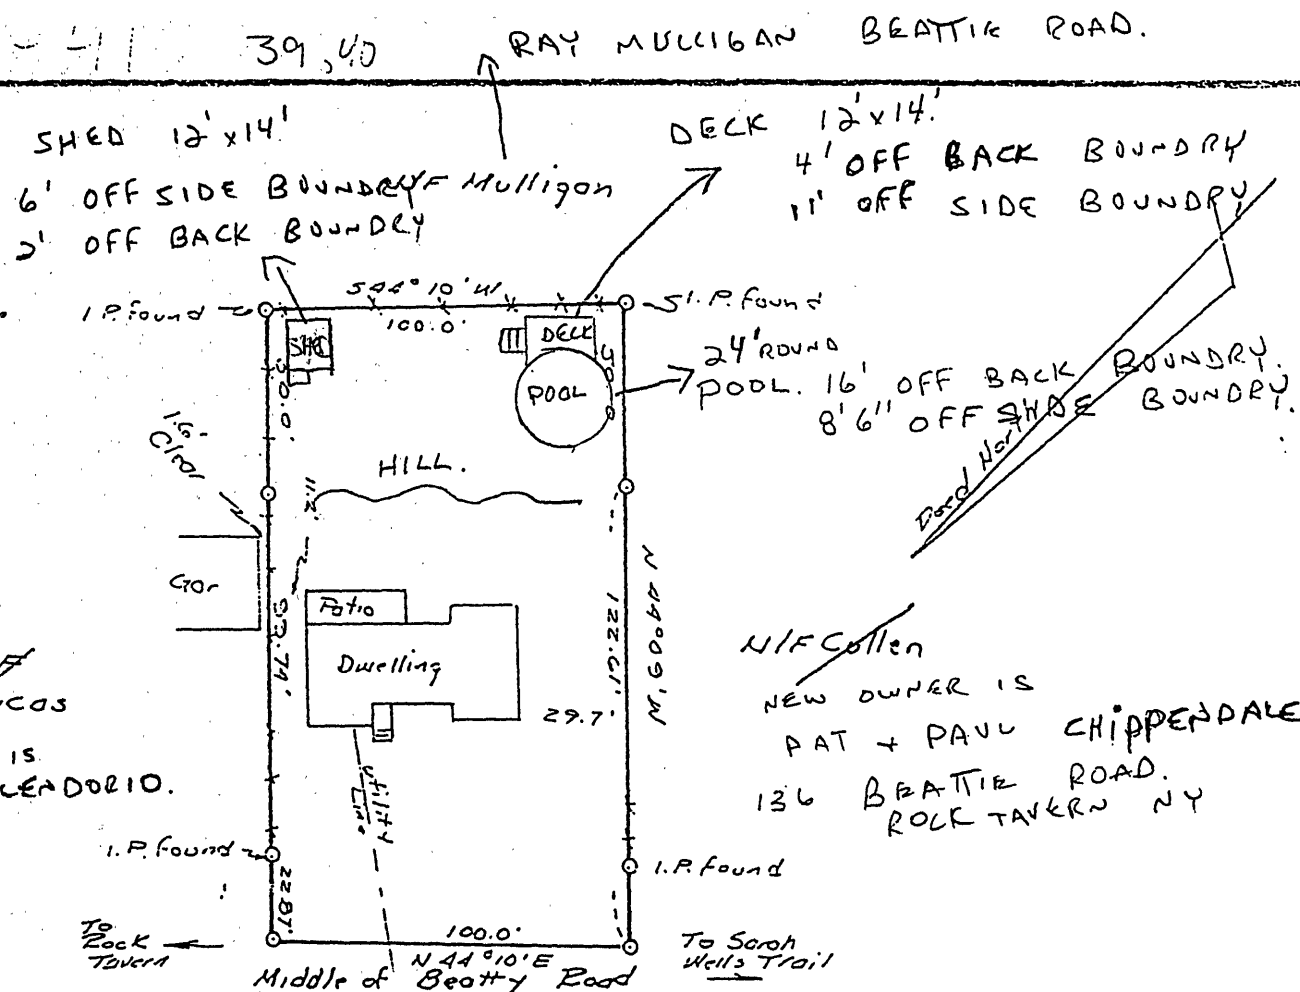 39,40
RAY MULLIGAN BEATTIE ROAD.
SHED 12'x14'.
6' OFF SIDE BOUNDRY
2' OFF BACK BOUNDRY
N/F Mulligan
DECK 12'x14'.
4' OFF BACK BOUNDRY
11' OFF SIDE BOUNDRY
I.P. found
S44°10'W
100.0'
I.P. found
SHED
DECK
POOL
50.0'
50.0'
24' ROUND
POOL. 16' OFF BACK BOUNDRY.
8'6" OFF SIDE BOUNDRY.
Deed North
1.6'
Clear
HILL.
11.2'
Gar
93.74'
Patio
Dwelling
29.7'
122.61'
N/F Collen
NEW OWNER IS
PAT + PAUL CHIPPENDALE
136 BEATTIE ROAD.
ROCK TAVERN NY
IS
LENDORIO.
Utility
Line
I.P. found
I.P. found
22.87'
To
Rock
Tavern
100.0'
N44°10'E
Middle of Beatty Road
To Sarah
Wells Trail